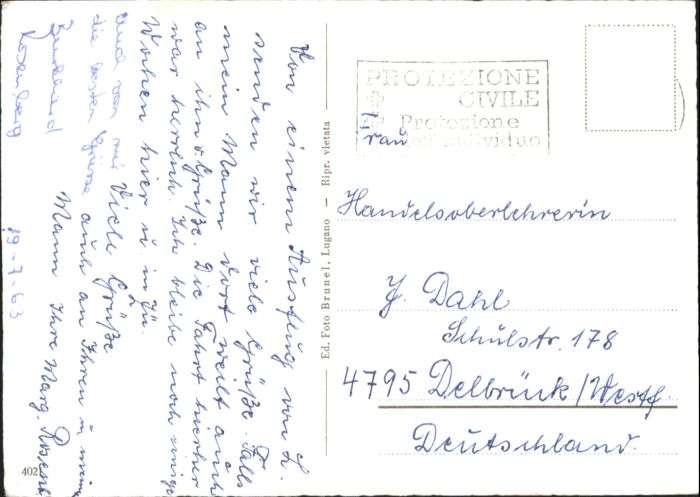 Von einem Ausflug von L.
senden wir viele Grüße. Falls
mein Mann dort weilt auch
an ihn Grüße. Die Fahrt hierher
war herrlich. Ich bleibe noch einige
Wochen hier u in Zü.
Viele Grüße
auch an Ihren u meinen
Mann Ihre Marg.
und von mir
die besten Grüße
19-7-63
402
Ed. Foto Brunel, Lugano — Ripr. vietata
PROTEZIONE
CIVILE
Protezione
individuo
Frau
Handelsoberlehrerin
J. Dahl
Schulstr. 178
4795 Delbrück/Westf.
Deutschland.